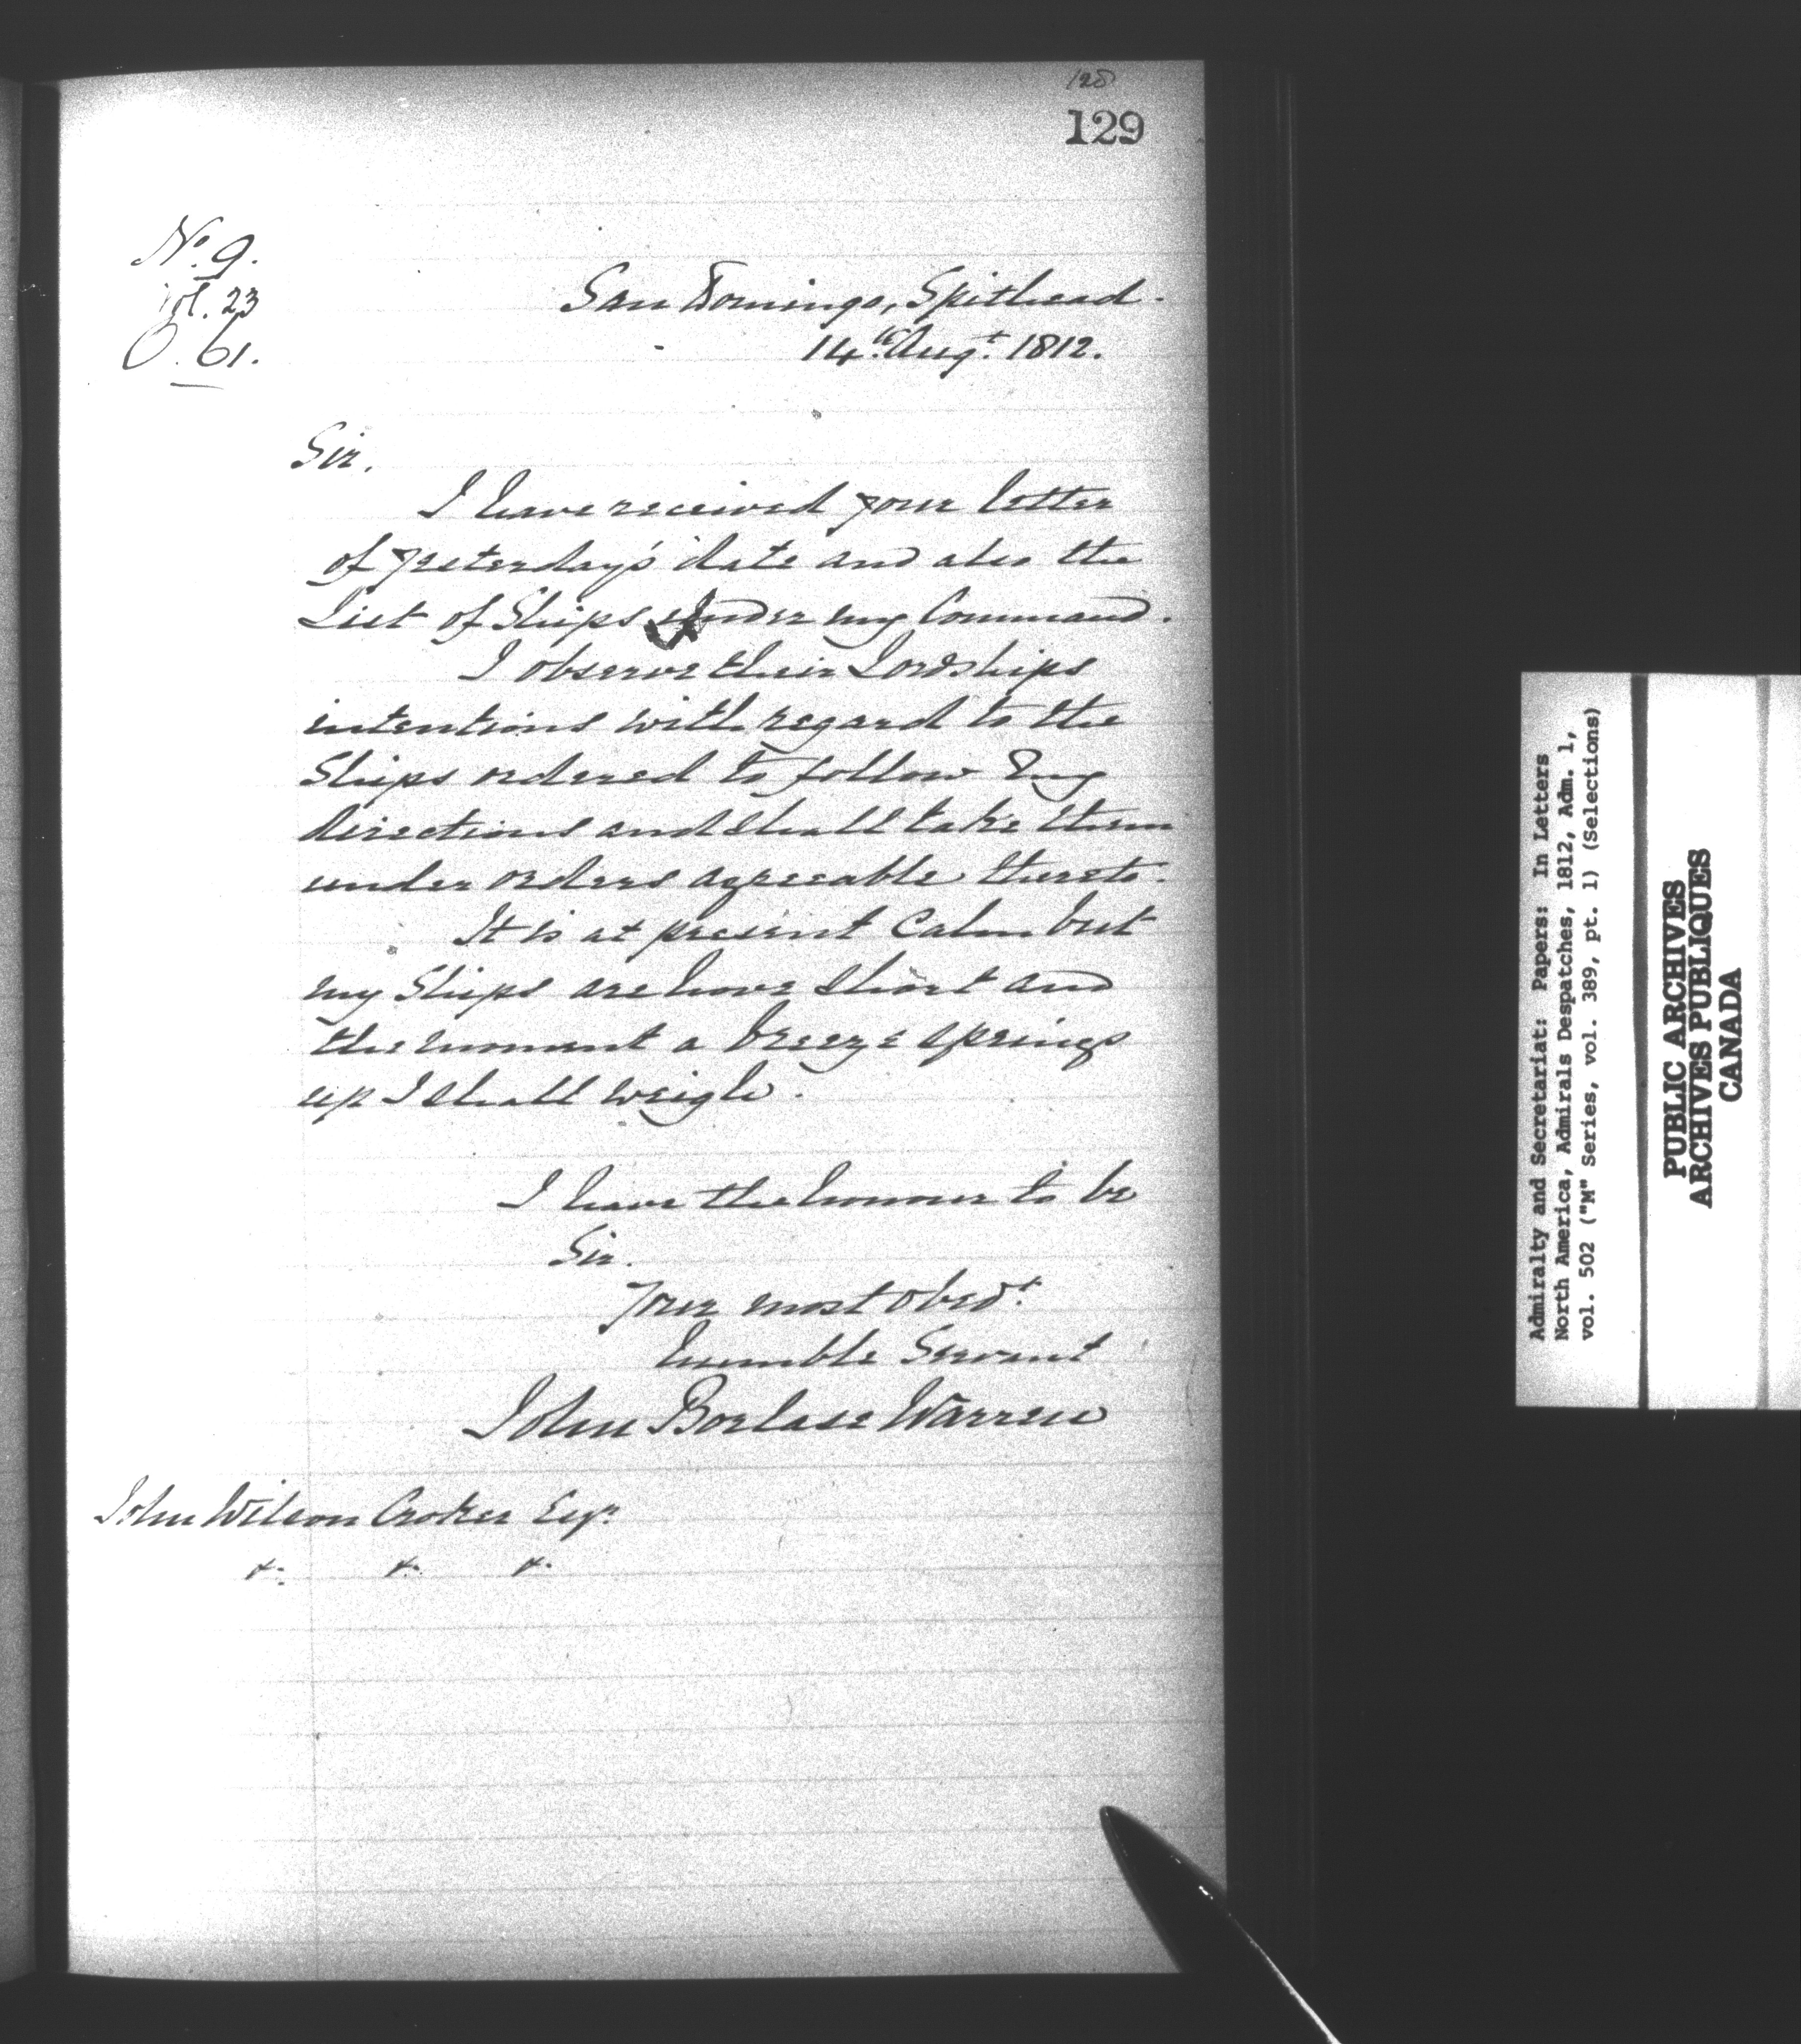 128
129
No. 9.
Vol. 23
O. 61.
San Domingo, Spithead.
14th Augt. 1812.
Sir.
I have received your letter
of yesterday's date and also the
List of Ships under my Command.
I observe their Lordships
intentions with regard to the
Ships ordered to follow my
directions and shall take them
under orders agreeable thereto.
It is at present Calm but
my Ships are hove short and
the moment a breeze springs
up I shall weigh.
I have the honour to be
Sir.
Your most obedt.
humble Servant
John Borlase Warren
John Wilson Croker Esqr.
&. &. &.
Admiralty and Secretariat: Papers: In Letters
North America, Admirals Despatches, 1812, Adm. 1,
vol. 502 ("M" Series, vol. 389, pt. 1) (Selections)
PUBLIC ARCHIVES
ARCHIVES PUBLIQUES
CANADA